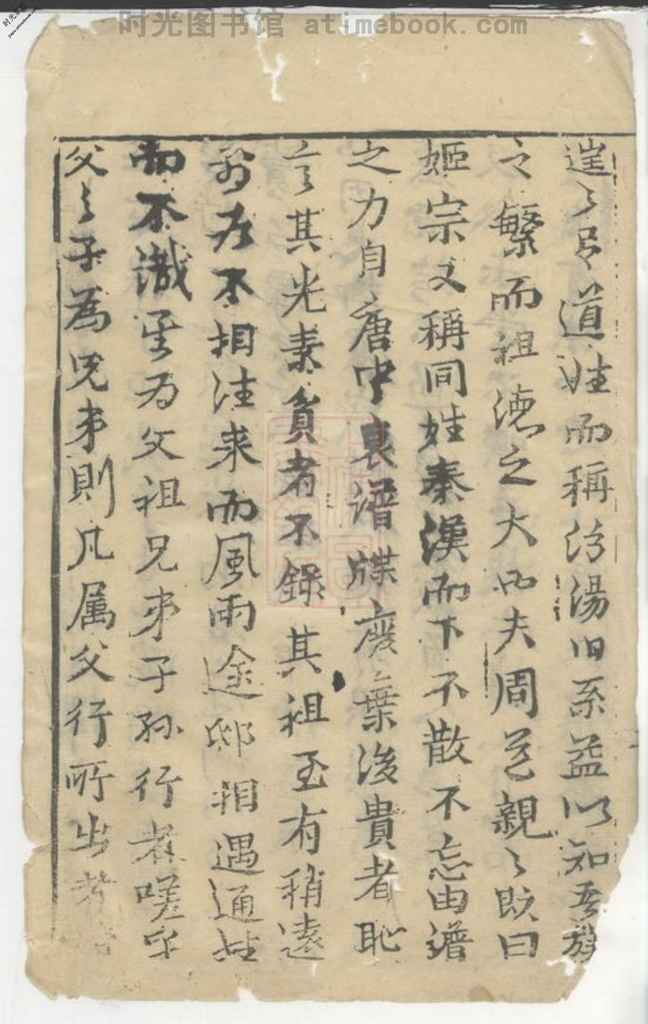 时光图书馆 atimebook.com
道姓而稱汾湯旧系益以知吾族
之繁而祖德之大也夫周道親々既曰
姬宗又稱同姓秦漢而下不散不忘由譜
之力自唐中衰譜牒廢棄後貴者恥
言其光素貧者不錄其祖至有稍遠
不相往來而風雨途邸相遇通姓
而不識某为父祖兄弟子孙行者嗟乎
父之子為兄弟則凡属父行所出